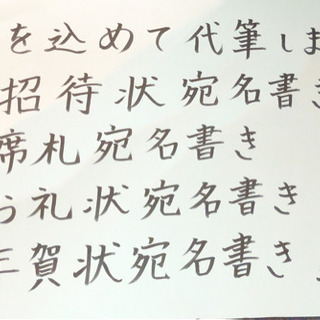 を込めて代筆しま
招待状宛名書き
席札宛名書き
礼状宛名書き
年賀状宛名書き